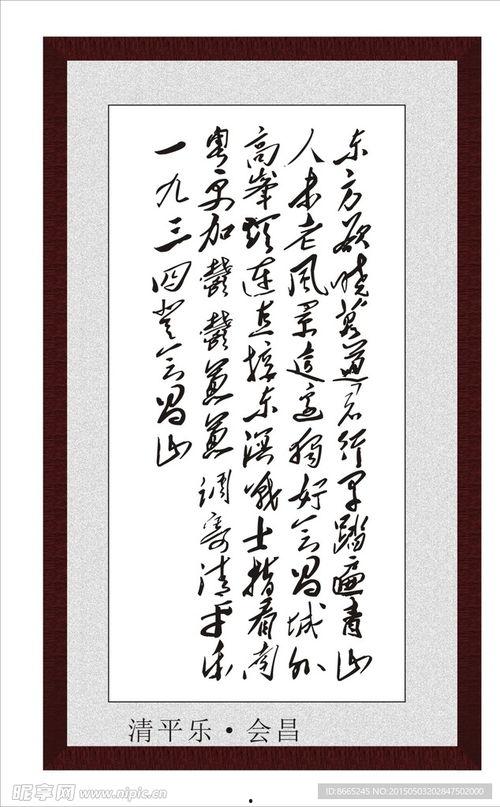 东方欲晓莫道君行早踏遍青山
人未老风景这边独好会昌城外
高峰颠连直接东溟战士指看南
粤更加鬱鬱葱葱调寄清平乐
一九三四登会昌山
清平乐·会昌
昵享网 www.nipic.cn
ID:8665245 NO:20150503202847502000